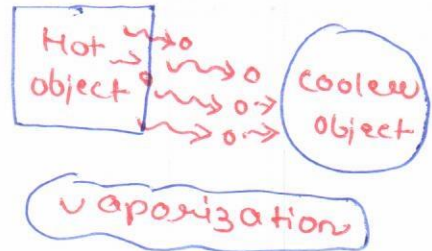 Hot
object
cooler
object
vaporization